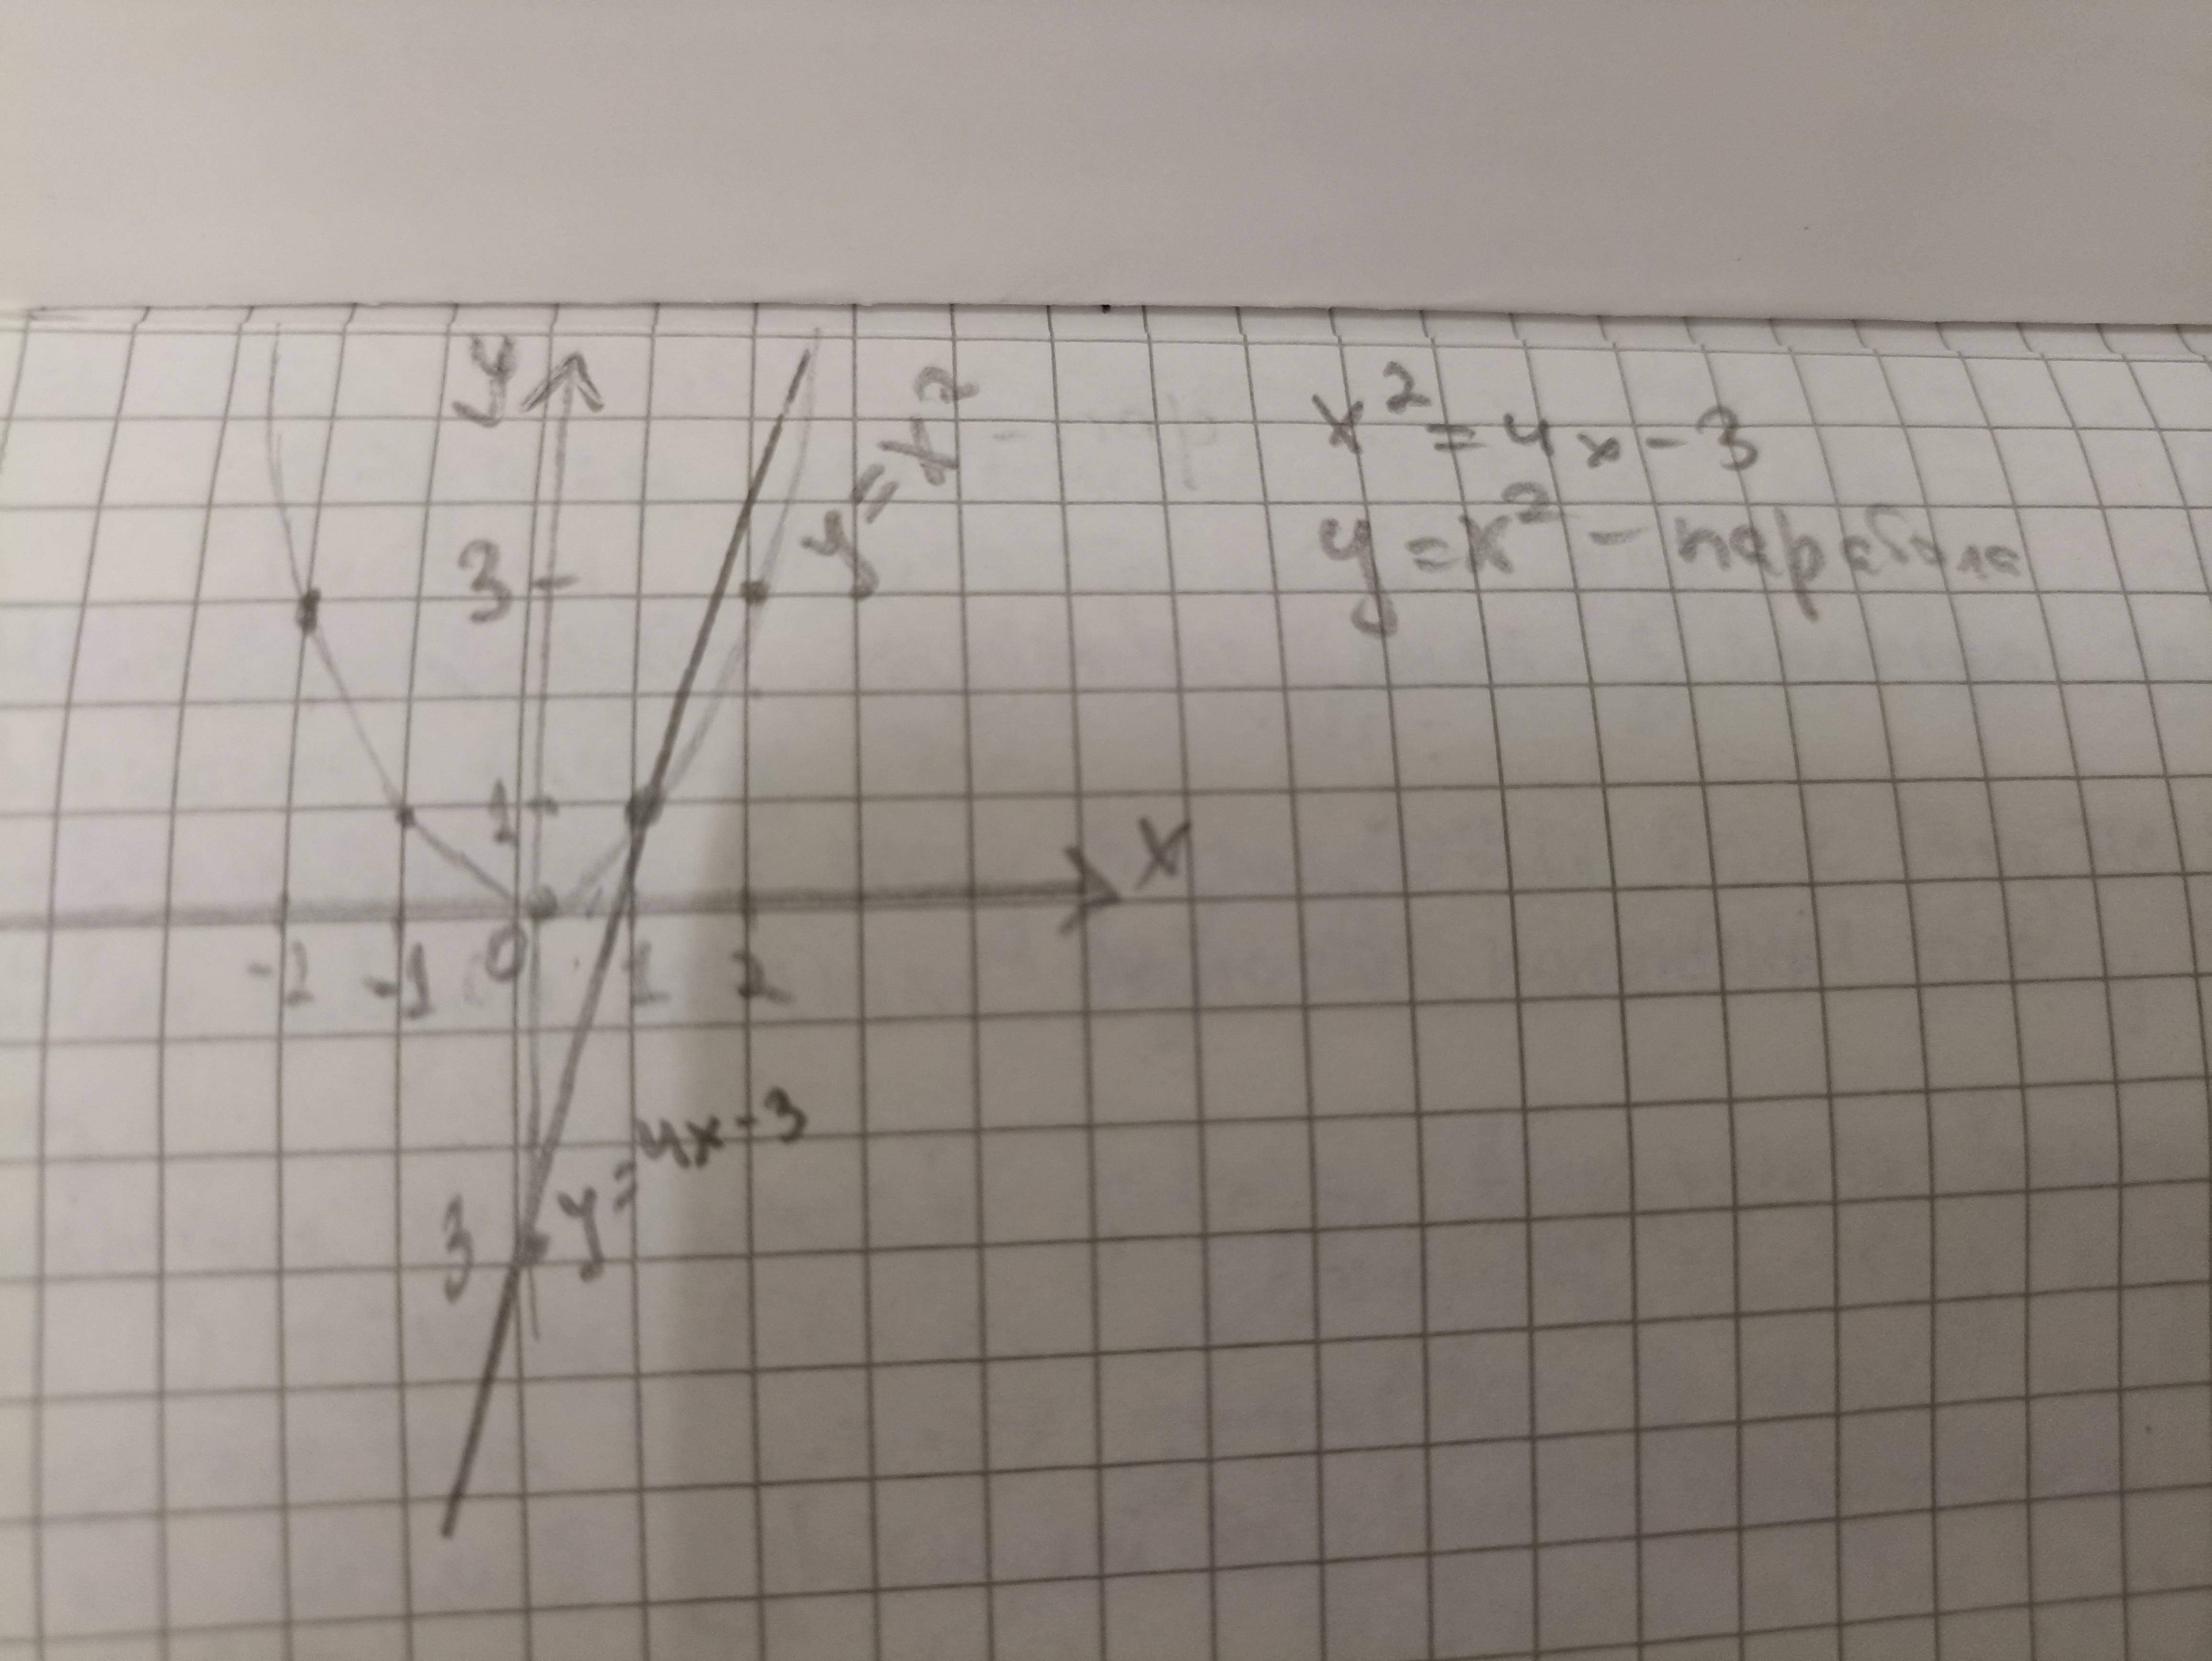 y
y=x²
x²=4x-3
y=x²-парабола
3
1
x
-2 -1 0 1 2
y=4x-3
3